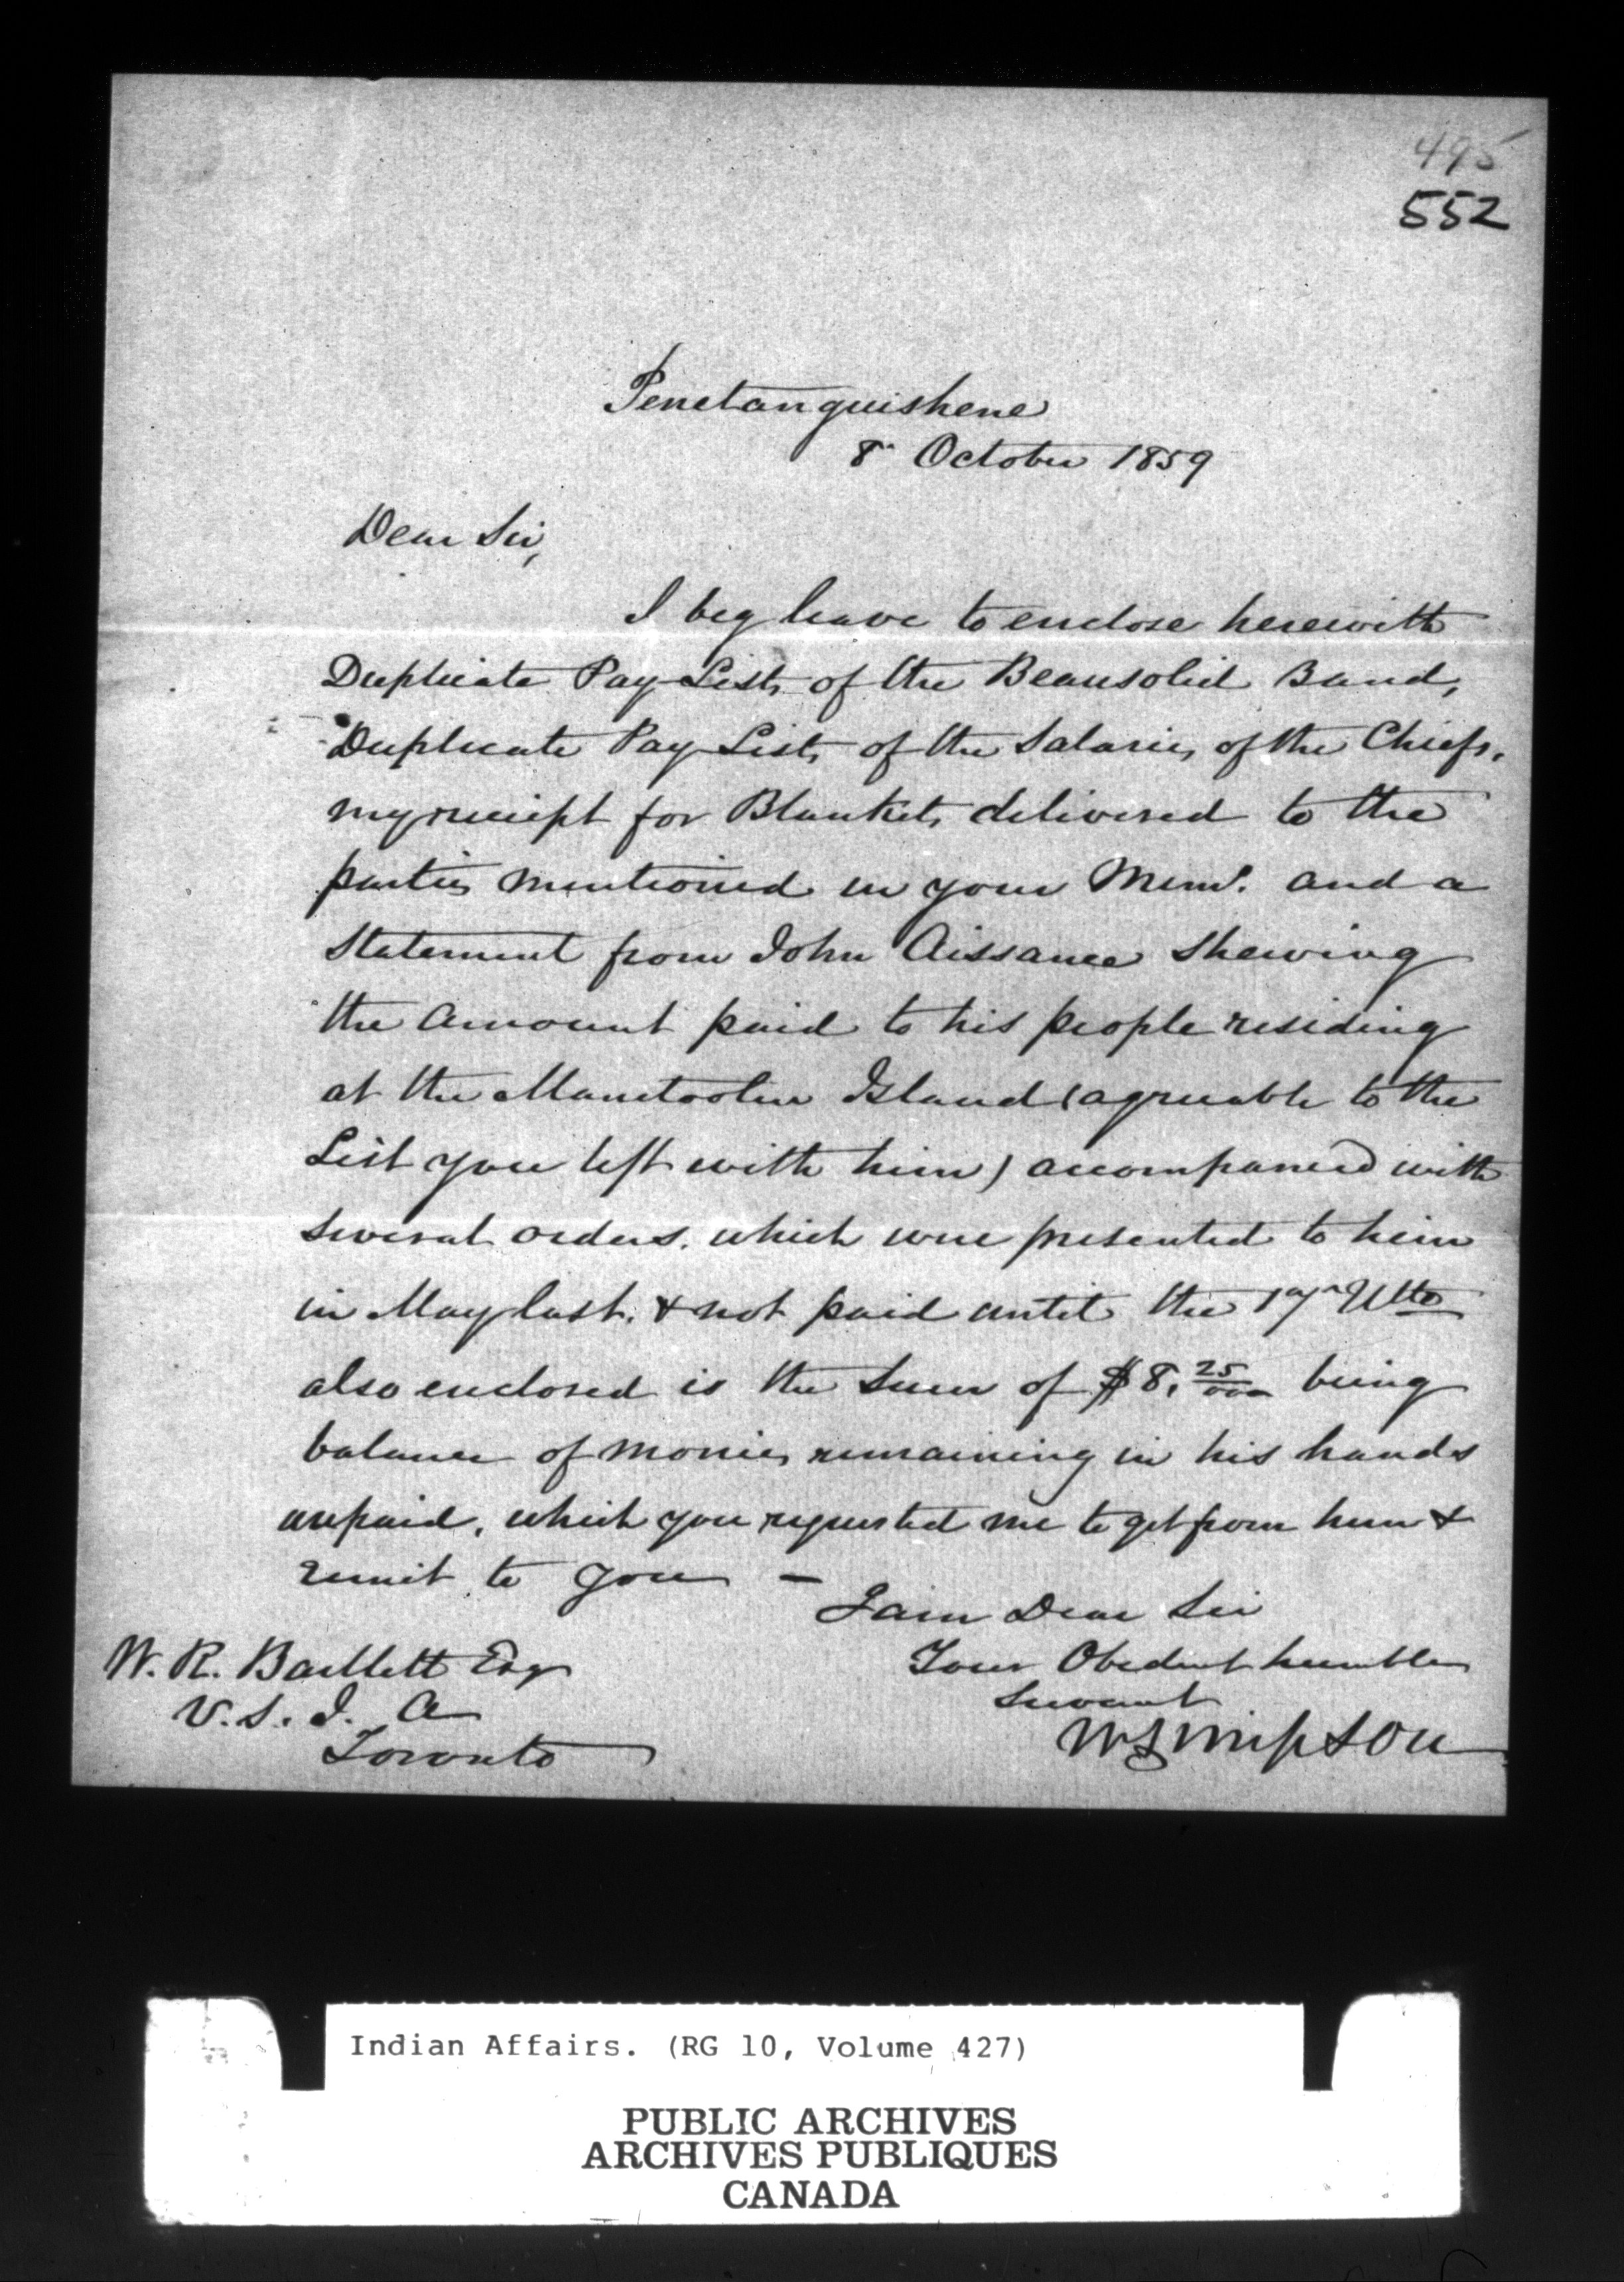 495
552
Penetanguishene
8th October 1859
Dear Sir,
I beg leave to enclose herewith
Duplicate Pay Lists of the Beausoliel Band,
Duplicate Pay Lists of the Salaries of the Chiefs,
my receipt for Blankets delivered to the
parties mentioned in your Memo. and a
Statement from John Aissance shewing
the amount paid to his people residing
at the Manetoolin Island (agreeable to the
List you left with him) accompanied with
several orders, which were presented to him
in May last, & not paid until the 17th Ulto
also enclosed is the Sum of $8. 25/100 being
balance of monies remaining in his hands
unpaid, which you requested me to get from him &
remit to you —
I am Dear Sir
Your Obedient humble
Servant
W Simpson
W. R. Bartlett Esq
V. S. I. A
Toronto
Indian Affairs. (RG 10, Volume 427)
PUBLIC ARCHIVES
ARCHIVES PUBLIQUES
CANADA